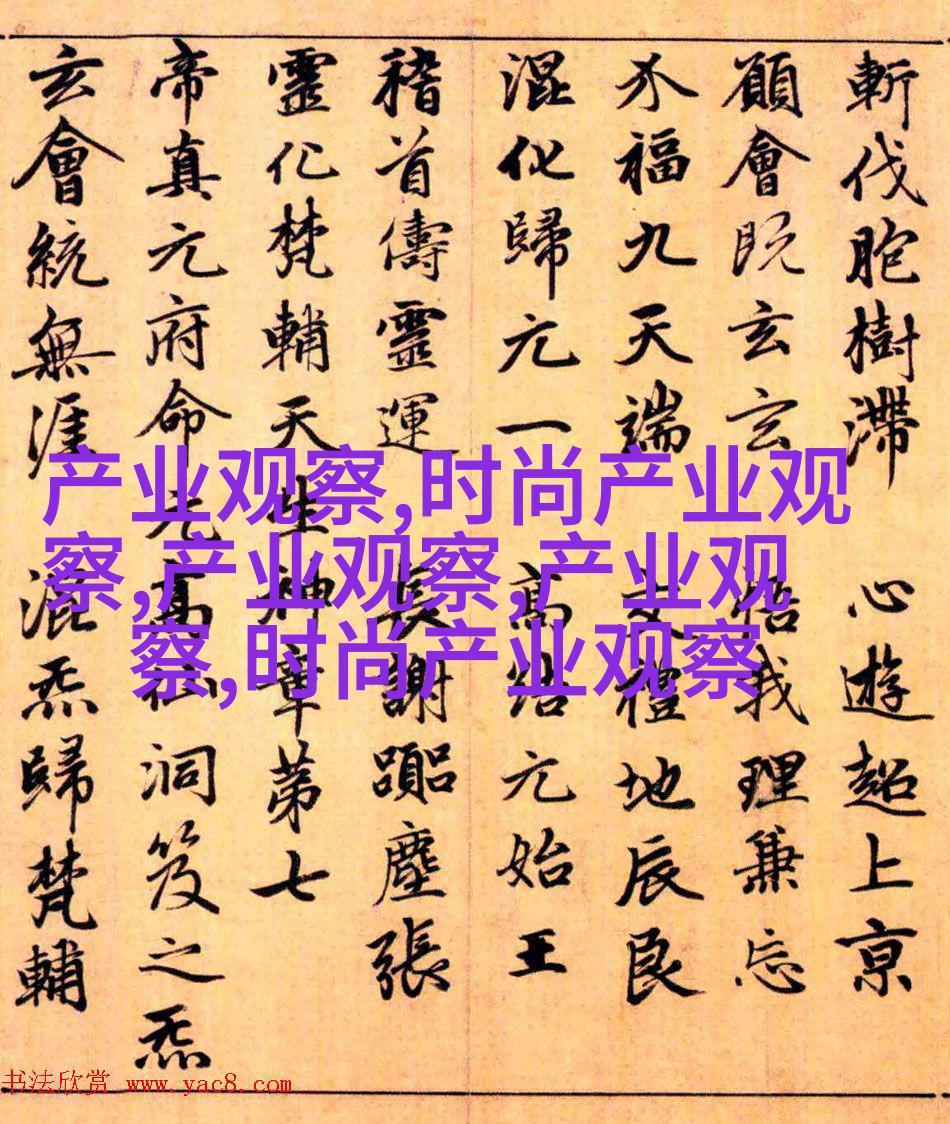 斬伐胞樹滯 心遊超上京
願會既玄玄 悟我理兼忘
介福九天端 交禮地辰良
混化歸元一 高結元始王
稽首儔靈運 長謝躡塵張
靈化梵輔天生神章第七
帝真元府命元高仙洞笈之炁
玄會統無涯 混炁歸梵輔
产业观察,时尚产业观
察,产业观察,产业观
察,时尚产业观察
书法欣赏 www.yac8.com